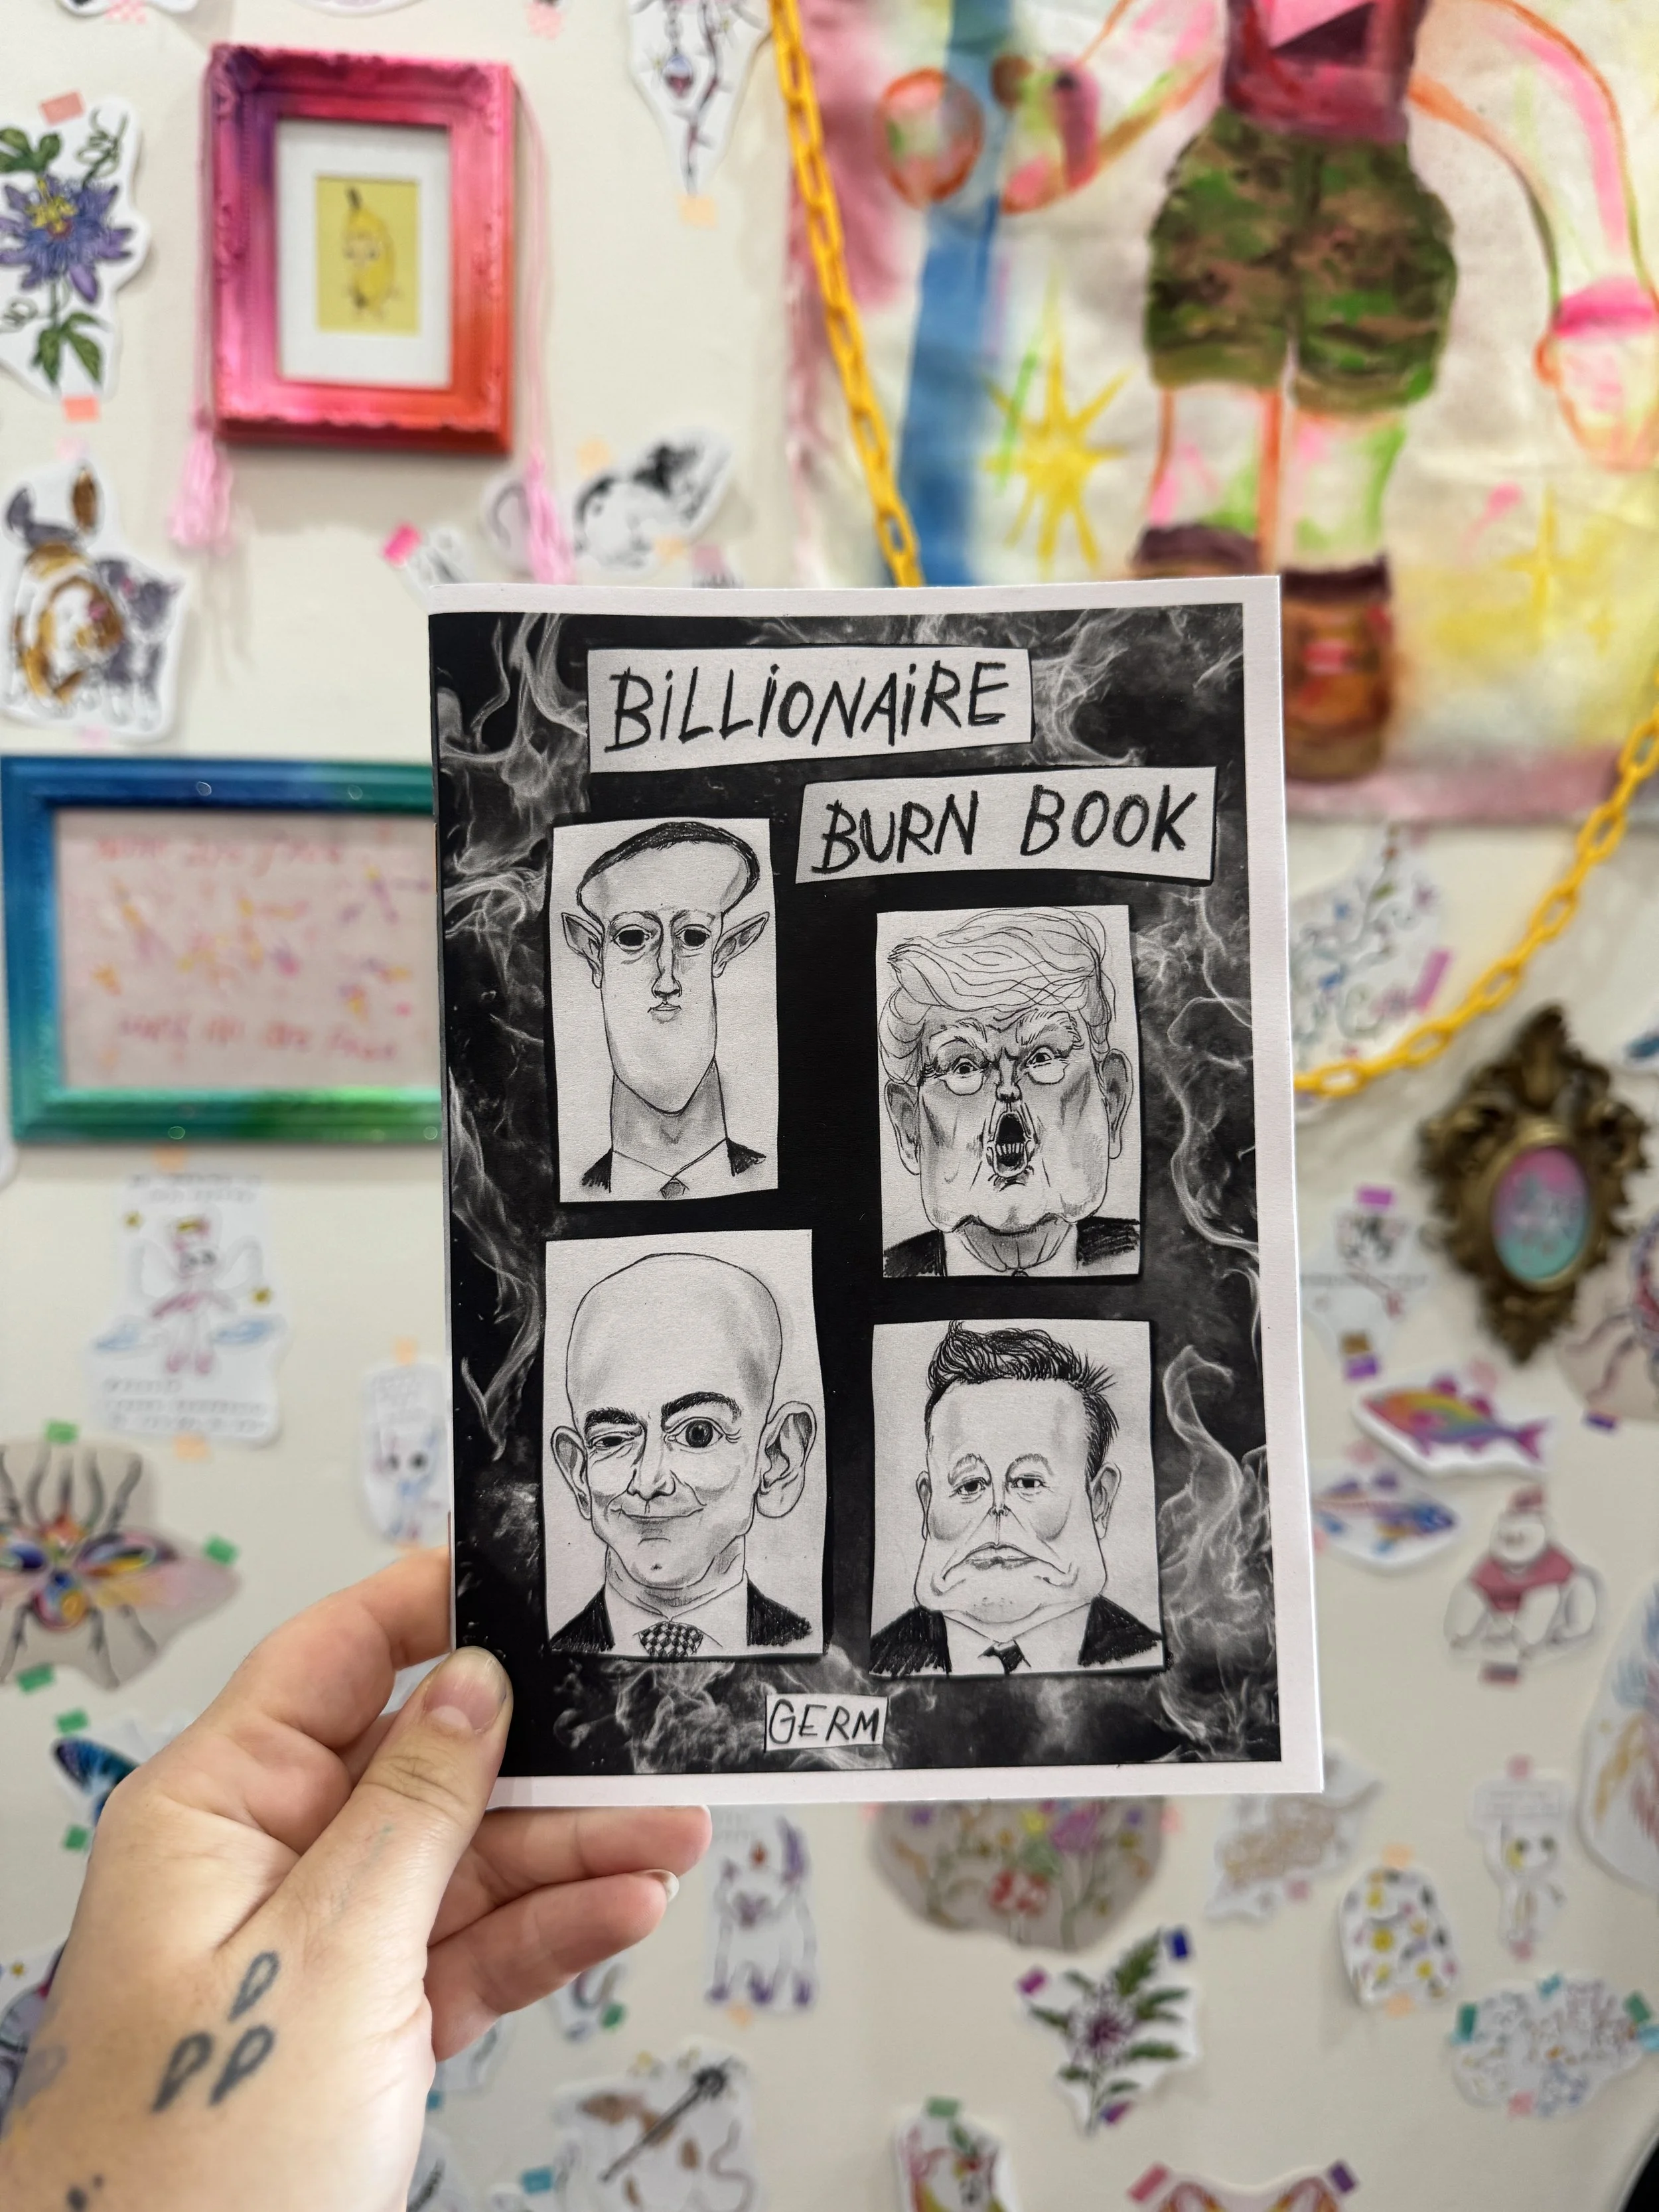 BiLLiONAiRE
BURN BOOK
GERM